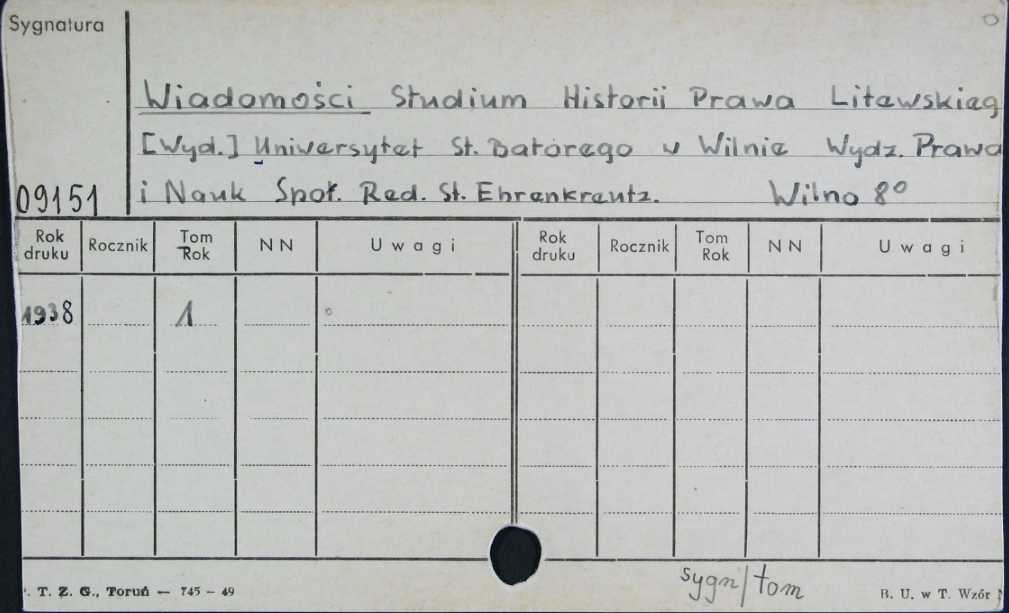 Sygnatura
Wiadomości Studium Historii Prawa Litewskieg
[Wyd.] Uniwersytet St. Batorego w Wilnie Wydz. Prawa
i Nauk Społ. Red. St. Ehrenkreutz. Wilno 8°
09151
Rok druku Rocznik Tom Rok NN Uwagi Rok druku Rocznik Tom Rok NN Uwagi
1938 1
sygn/tom
T. Z. G., Toruń — 745 - 49
B. U. w T. Wzór